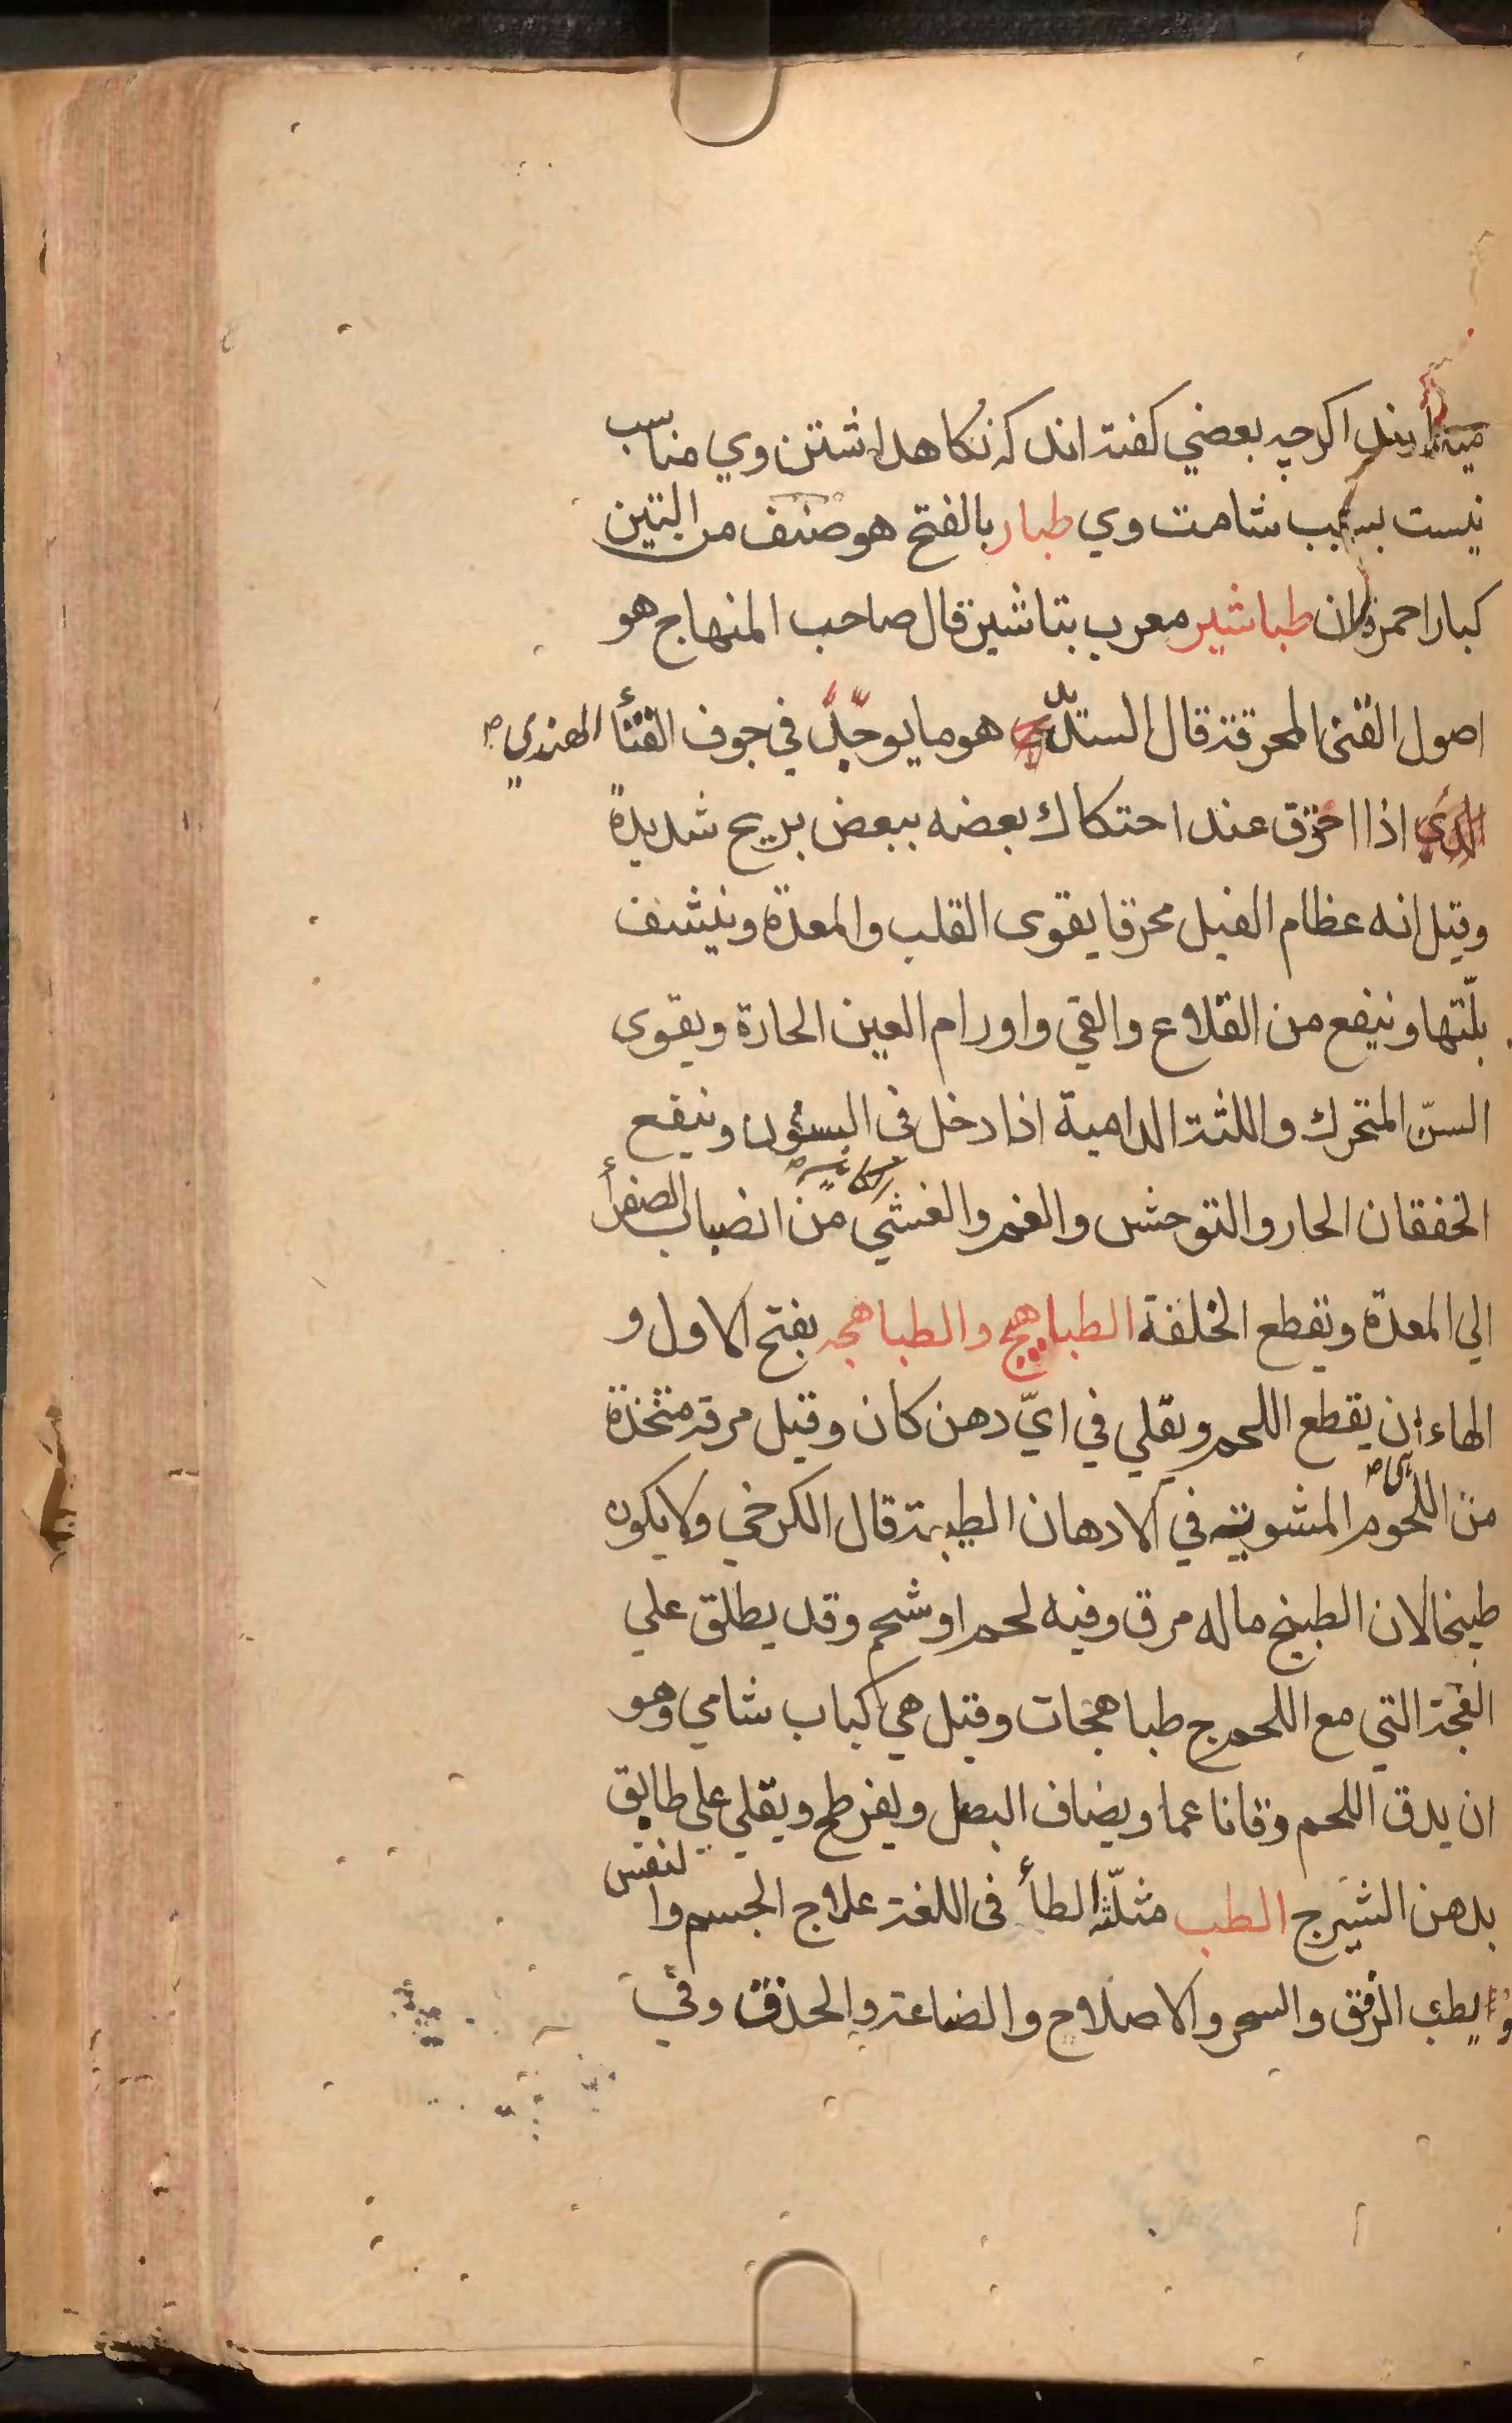 اكرچه بعضي كفته اند كه نكاهداشتن وي مناسب
نيست بسبب شامت وي طبار بالفتح هو صنف من التين
كبار احمر طباشير معرب بتاشير قال صاحب المنهاج هو
اصول القنى المحرقة قال هو ما يوجد في جوف القنأ الهندي
الذي اذا احترق عند احتكاك بعضه ببعض بريح شديدة
وقيل انه عظام الفيل محرقا يقوى القلب والمعدة وينشف
بلّتها وينفع من القلاع والقي واورام العين الحارة ويقوى
السنّ المتحرك واللثة الدامية اذا دخل في وينفع
الخفقان الحار والتوحش والغم والغشي من انصباب الصفرأ
الي المعدّة ويقطع الخلفة الطباهج والطباهجه بفتح الاول و
الهاء ان يقطع اللحم ويقلي في ايّ دهن كان وقيل مرقة متخذة
من اللحوم المشوية في الادهان الطيبة قال الكرخي ولا يكون
طبيخا لان الطبيخ ماله مرق وفيه لحم او شحم وقد يطلق علي
التي مع اللحم ج طباهجات وقيل هي كباب شامي وهو
ان يدق اللحم دقا ناعما ويضاف البصل ويفرطح ويقلي علي طابق
بدهن الشيرج الطب مثلّثة الطأ في اللغة علاج الجسم والنفس
والطب الرفق والسحر والاصلاح والصناعة والحذق وفي